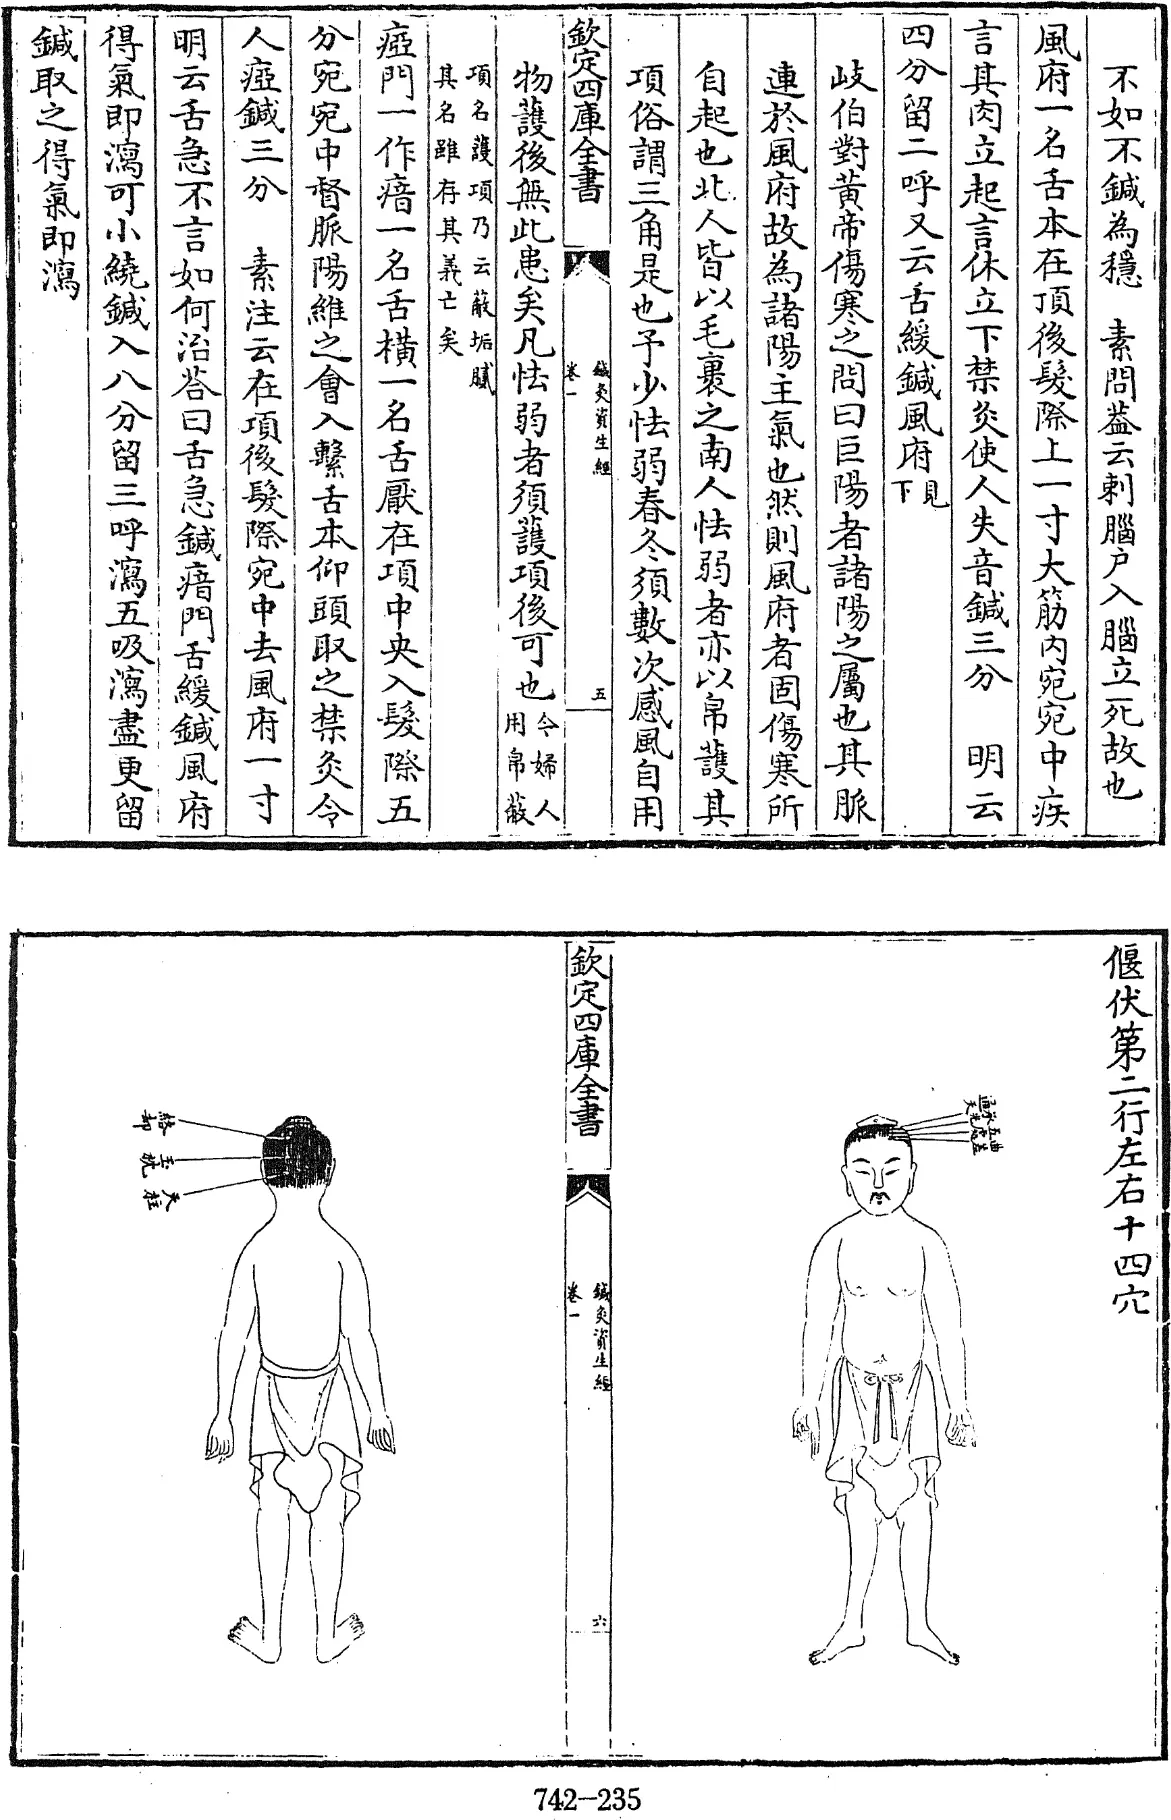 不如不鍼為穩　素問蓋云刺腦户入腦立死故也
風府一名舌本在頂後髮際上一寸大筋内宛宛中疾
言其肉立起言休立下禁灸使人失音鍼三分　明云
四分留二呼又云舌緩鍼風府見下
歧伯對黄帝傷寒之問曰巨陽者諸陽之屬也其脈
連於風府故為諸陽主氣也然則風府者固傷寒所
自起也北人皆以毛裹之南人怯弱者亦以帛護其
項俗謂三角是也予少怯弱春冬須數次感風自用
欽定四庫全書
鍼灸資生經
卷一
五
物護後無此患矣凡怯弱者須護項後可也今婦人用帛蔽
項名護項乃云蔽垢膩
其名雖存其義亡矣
瘂門一作瘖一名舌横一名舌厭在項中央入髮際五
分宛宛中督脈陽維之會入繫舌本仰頭取之禁灸令
人瘂鍼三分　素注云在項後髮際宛中去風府一寸
明云舌急不言如何治荅曰舌急鍼瘖門舌緩鍼風府
得氣即瀉可小繞鍼入八分留三呼瀉五吸瀉盡更留
鍼取之得氣即瀉
偃伏第二行左右十四穴
曲差
五處
承光
通天
欽定四庫全書
鍼灸資生經
卷一
六
絡却
玉枕
天柱
742-235